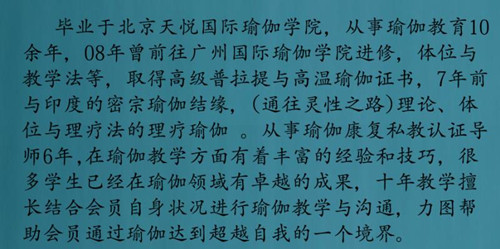 毕业于北京天悦国际瑜伽学院，从事瑜伽教育10
余年，08年曾前往广州国际瑜伽学院进修，体位与
教学法等，取得高级普拉提与高温瑜伽证书，7年前
与印度的密宗瑜伽结缘，(通往灵性之路)理论、体
位与理疗法的理疗瑜伽 。从事瑜伽康复私教认证导
师6年,在瑜伽教学方面有着丰富的经验和技巧，很
多学生已经在瑜伽领域有卓越的成果，十年教学擅
长结合会员自身状况进行瑜伽教学与沟通，力图帮
助会员通过瑜伽达到超越自我的一个境界。